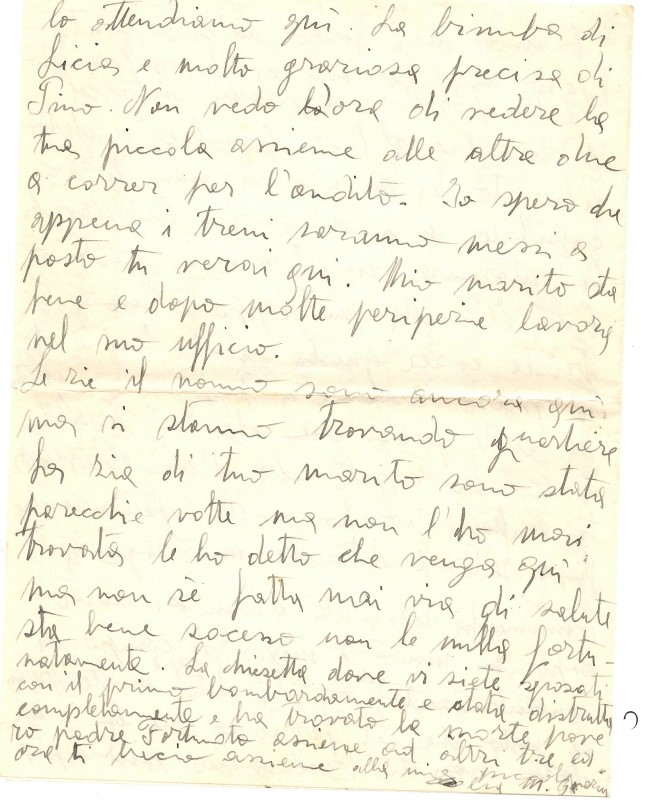 lo attendiamo quì. La bimba di
Licia e molto graziosa precisa di
Pino. Non vedo l'ora di vedere la
tua piccola assieme alle altre due
a correr per l'andito. Io spero che
appena i treni saranno messi a
posto tu verai quì. Mio marito sta
bene e dopo molte periperie lavora
nel suo ufficio.
Le zie il nonno sono ancora quì
ma si stanno trovando quartiere
La zia di tuo marito sono stata
parecchie volte ma non l'ho mai
trovata le ho detto che venga quì
ma non sè fatta mai via di salute
sta bene sucesso non le nulla fortu-
natamente. La chiesetta dove vi siete sposati
con il primo bombardamento e stata distrutta
completamente e ha trovato la morte pove
ro padre Fortunato assieme ad altri tre ed
ora ti bacio assieme alla mia